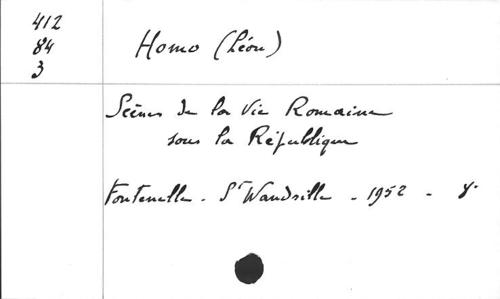 412
84
3
Homo (Léon)
Scènes de la Vie Romaine
sous la République
Fontenelle - St Wandrille - 1952 - 8°